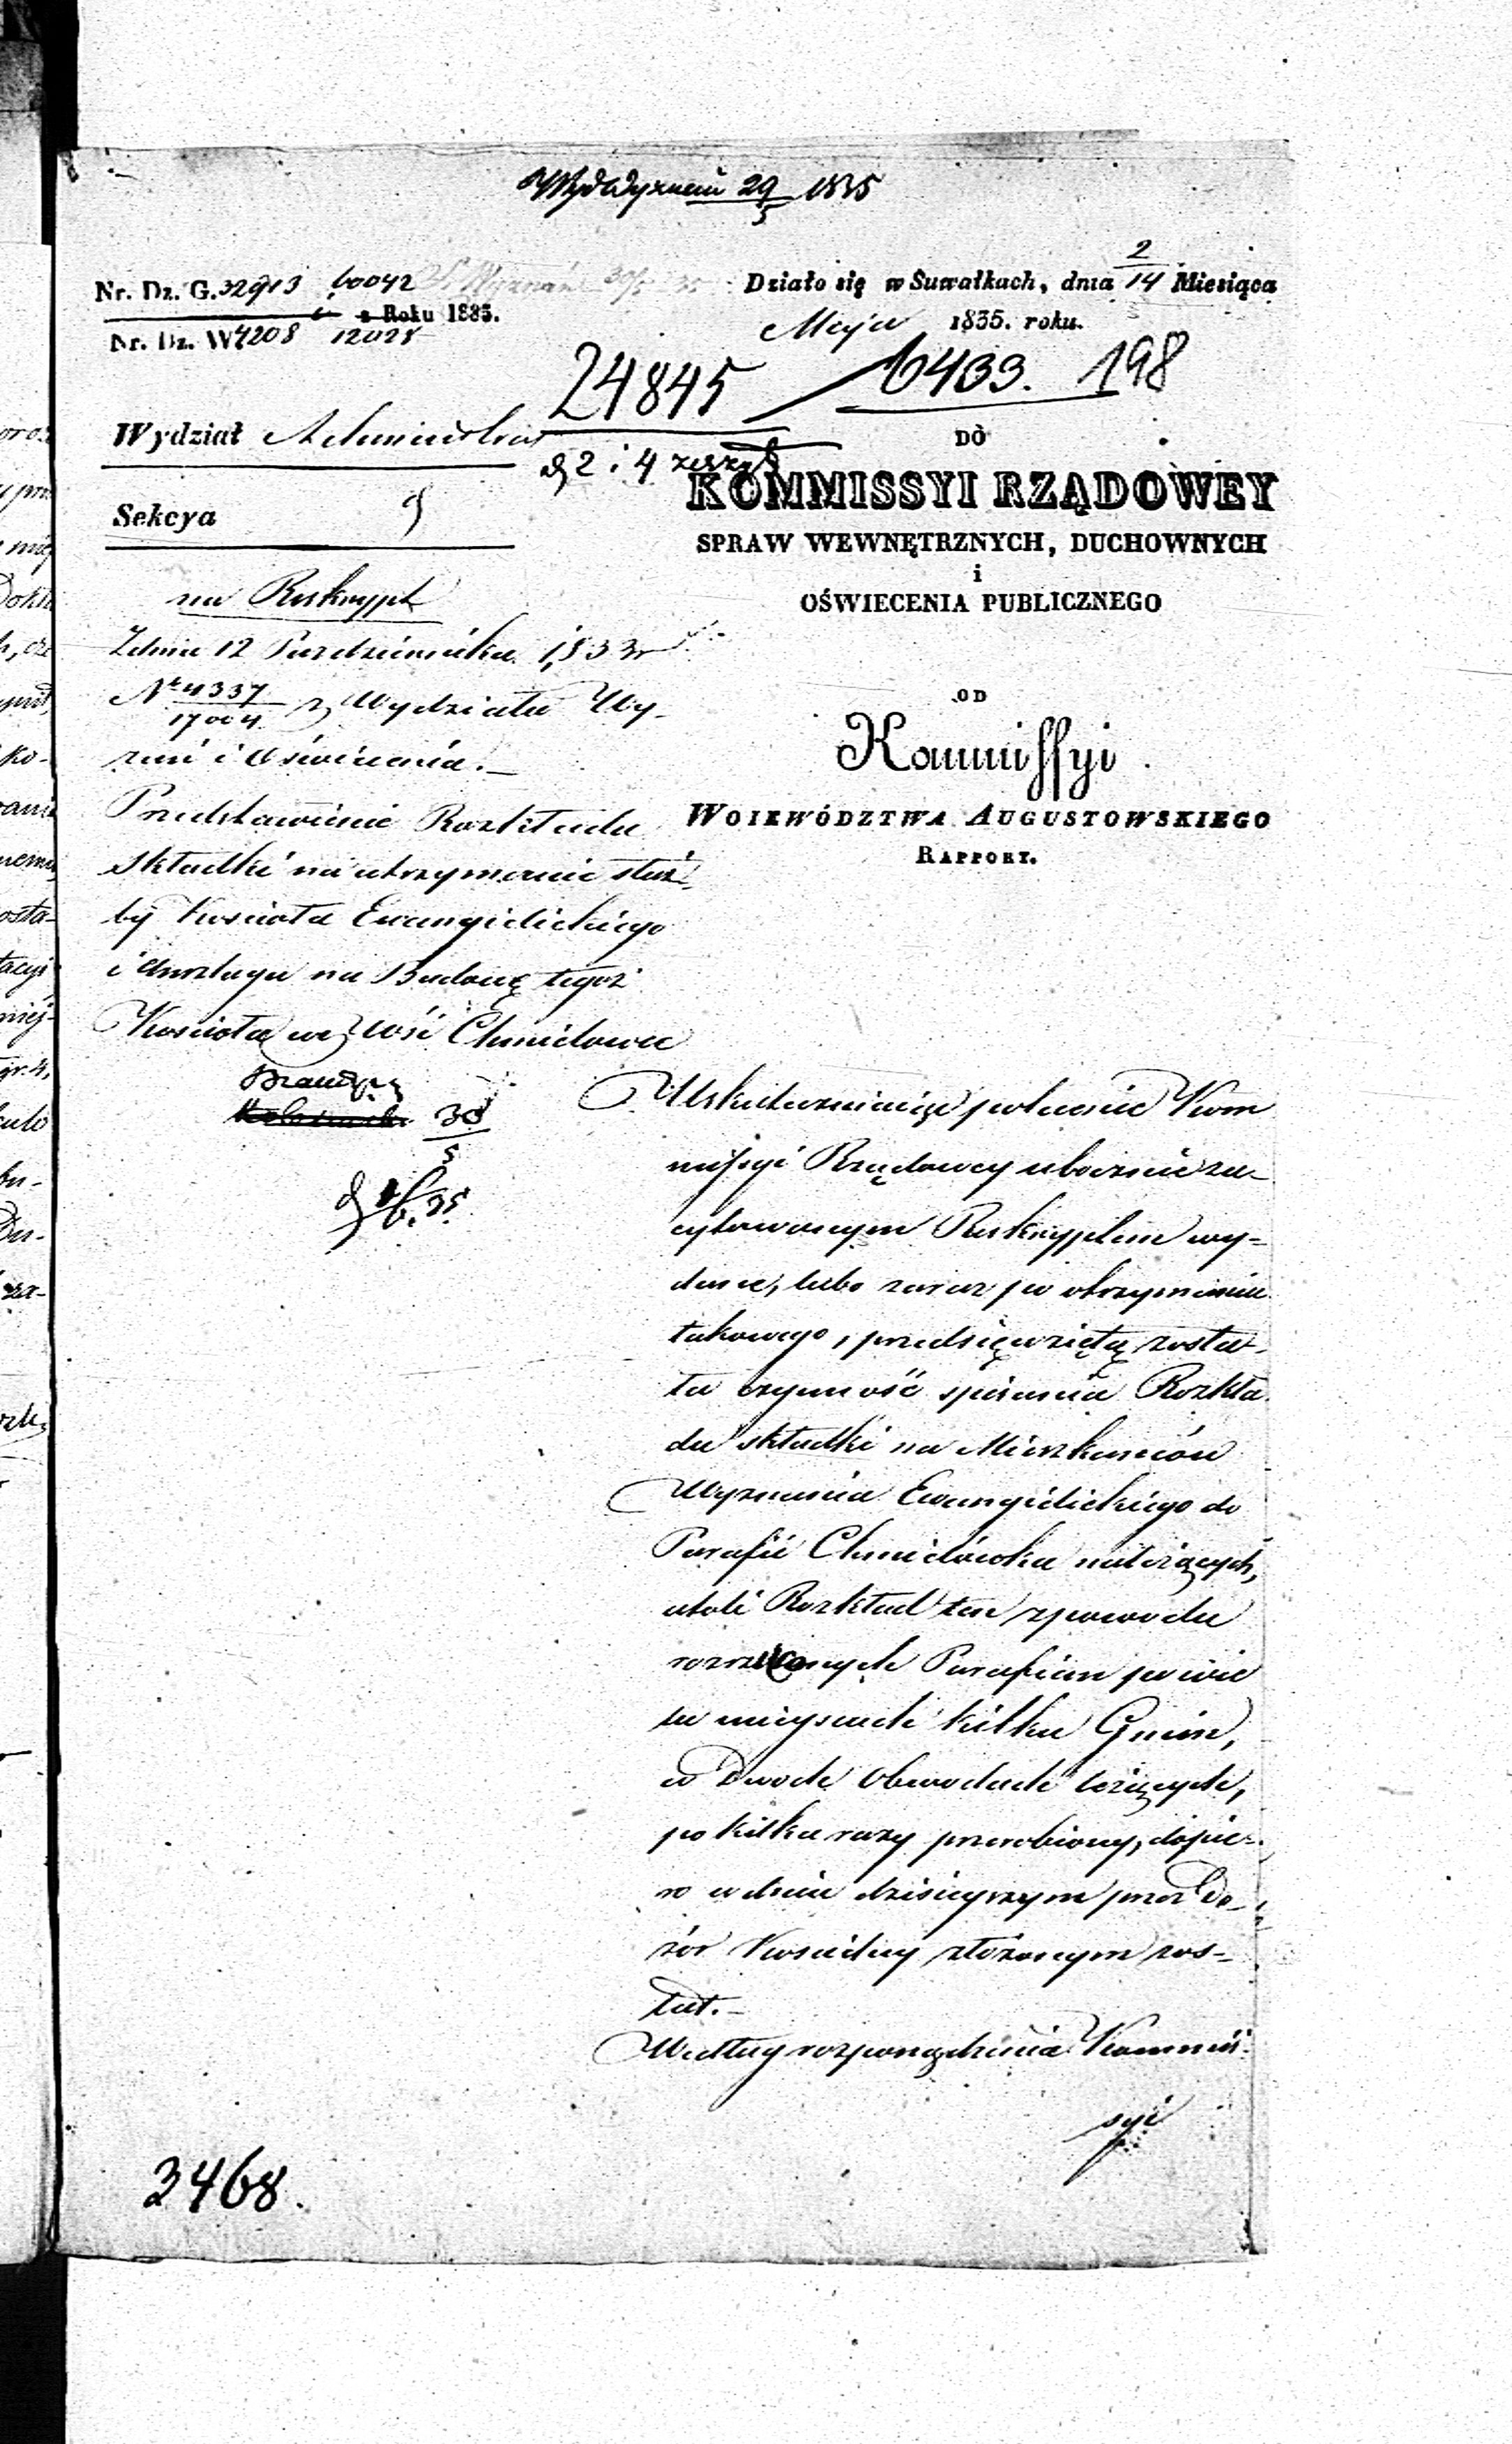 29/5 1835
Nr. Dz. G. 32913 60042
z Roku 1835.
Nr. Dz. W 4208 12028
Działo się w Suwałkach, dnia 2/14 Miesiąca
Maja 1835. roku.
24845 6433. 198
2 i 4 zeszyt
Wydział Administrac
Sekcya
DO
KOMMISSYI RZĄDOWEY
SPRAW WEWNĘTRZNYCH, DUCHOWNYCH
i
OŚWIECENIA PUBLICZNEGO
OD
Kommissyi
WOIEWÓDZTWA AUGUSTOWSKIEGO
RAPPORT.
na Reskrypt
Zdnia 12 Pazdziernika 1833r
Nr 4337/17004 z Wydziału Wy-
znań i Oświecenia.—
Przedstawienie Rozkładu
składki na utrzymanie służ-
by Koscioła Ewangielickiego
i Anszlagu na Budowę tegoż
Koscioła we Wsi Chmielowce
30/5
Uskuteczniaiąc polecenie Kom
missyi Rządowey ubocznie za-
cytowanym Reskryptem wy-
dane, lubo zaraz po otrzymaniu
takowego, przedsięwziętą zosta-
ła czynność spisania Rozkła
du składki na Mieszkańców
Wyznania Ewangielickiego do
Parafii Chmielówka należących,
atoli Rozkład ten z powodu
rozrzuconych Parafian po wie
lu mieyscach kilku Gmin,
w Dwóch Obwodach leżących,
po kilka razy przerobiony, dopie-
ro w dniu dzisieyszym przez Do-
zór Koscielny złożonym zos-
tał.—
Według rozporządzenia Kommis-
syi
3468.